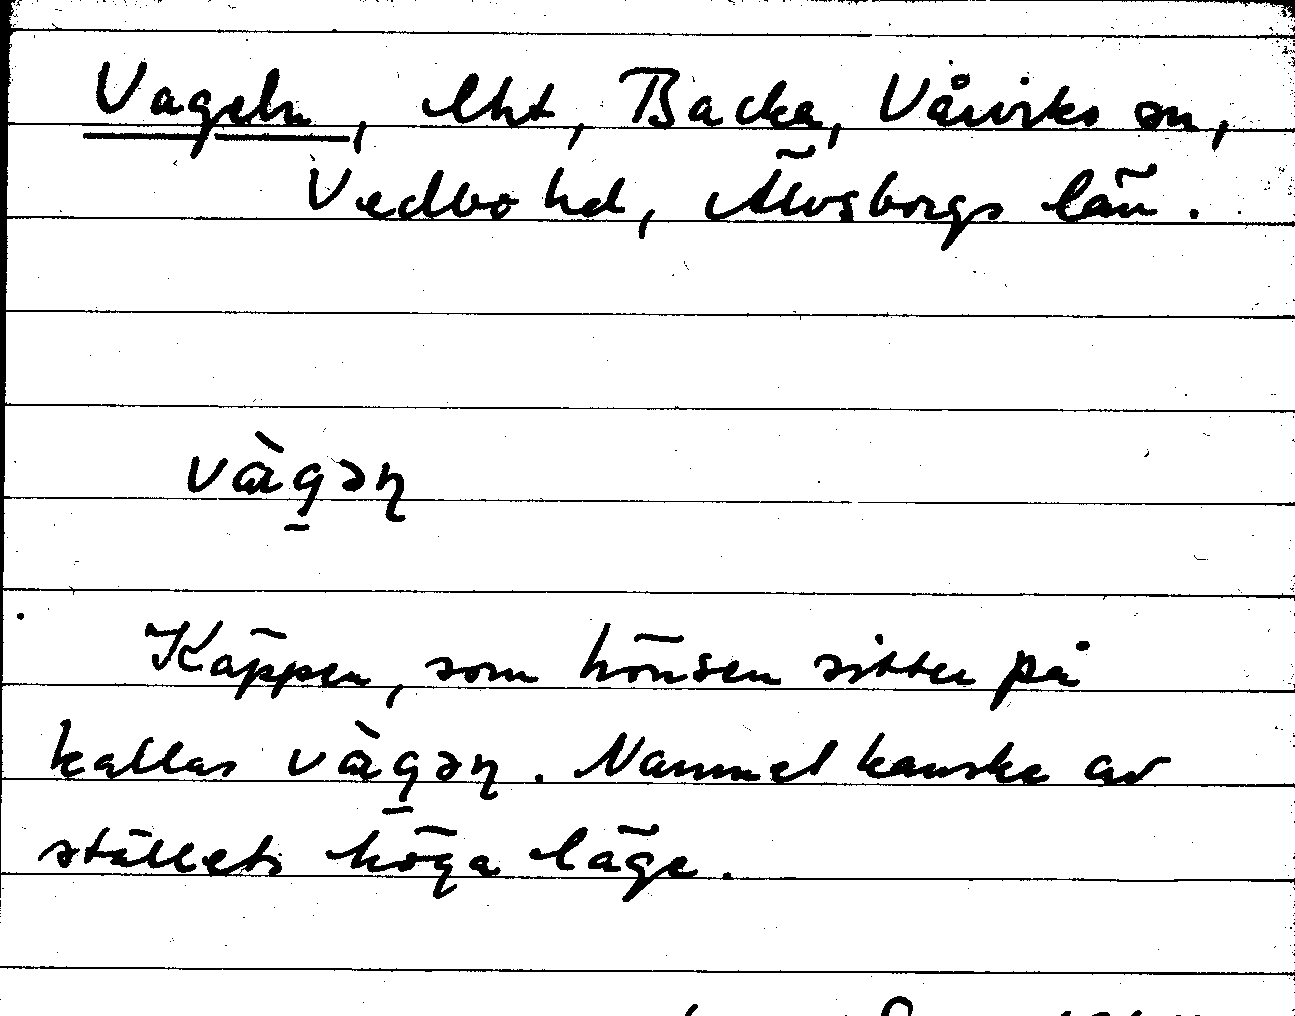 Vageln, lht, Backa, Vårviks sn,
Vedbo hd, Älvsborgs län.
vàgəɳ
Käppen, som hönsen sitter på
kallas vàgəɳ. Namnet kanske av
ställets höga läge.